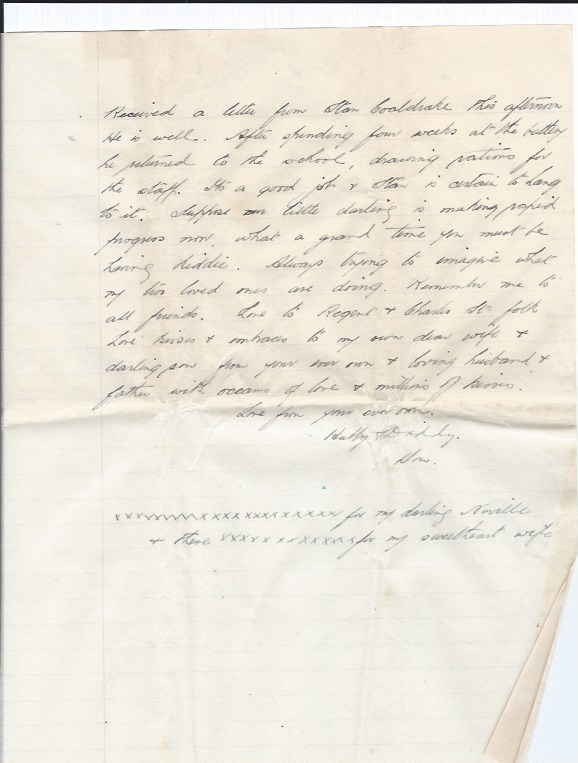 Received a letter from Stan Coaldrake this afternoon
He is well. After spending four weeks at the battery
he returned to the school, drawing rations for
the staff. It's a good job & Stan is certain to hang
to it. Suppose our little darling is making rapid
progress now, what a grand time you must be
having kiddie. Always trying to imagine what
my two loved ones are doing. Remember me to
all friends. Love to Regent & Charles St folk
Love kisses & embraces to my own dear wife &
darling son from your ever own & loving husband &
father with oceans of love & millions of kisses.
Love from your ever own.
Hubby & Diddy.
xxxxxxxxxxxxxxxxxxxxxx for my darling Neville
& these xxxxxxxxxxxxxx for my sweetheart wife